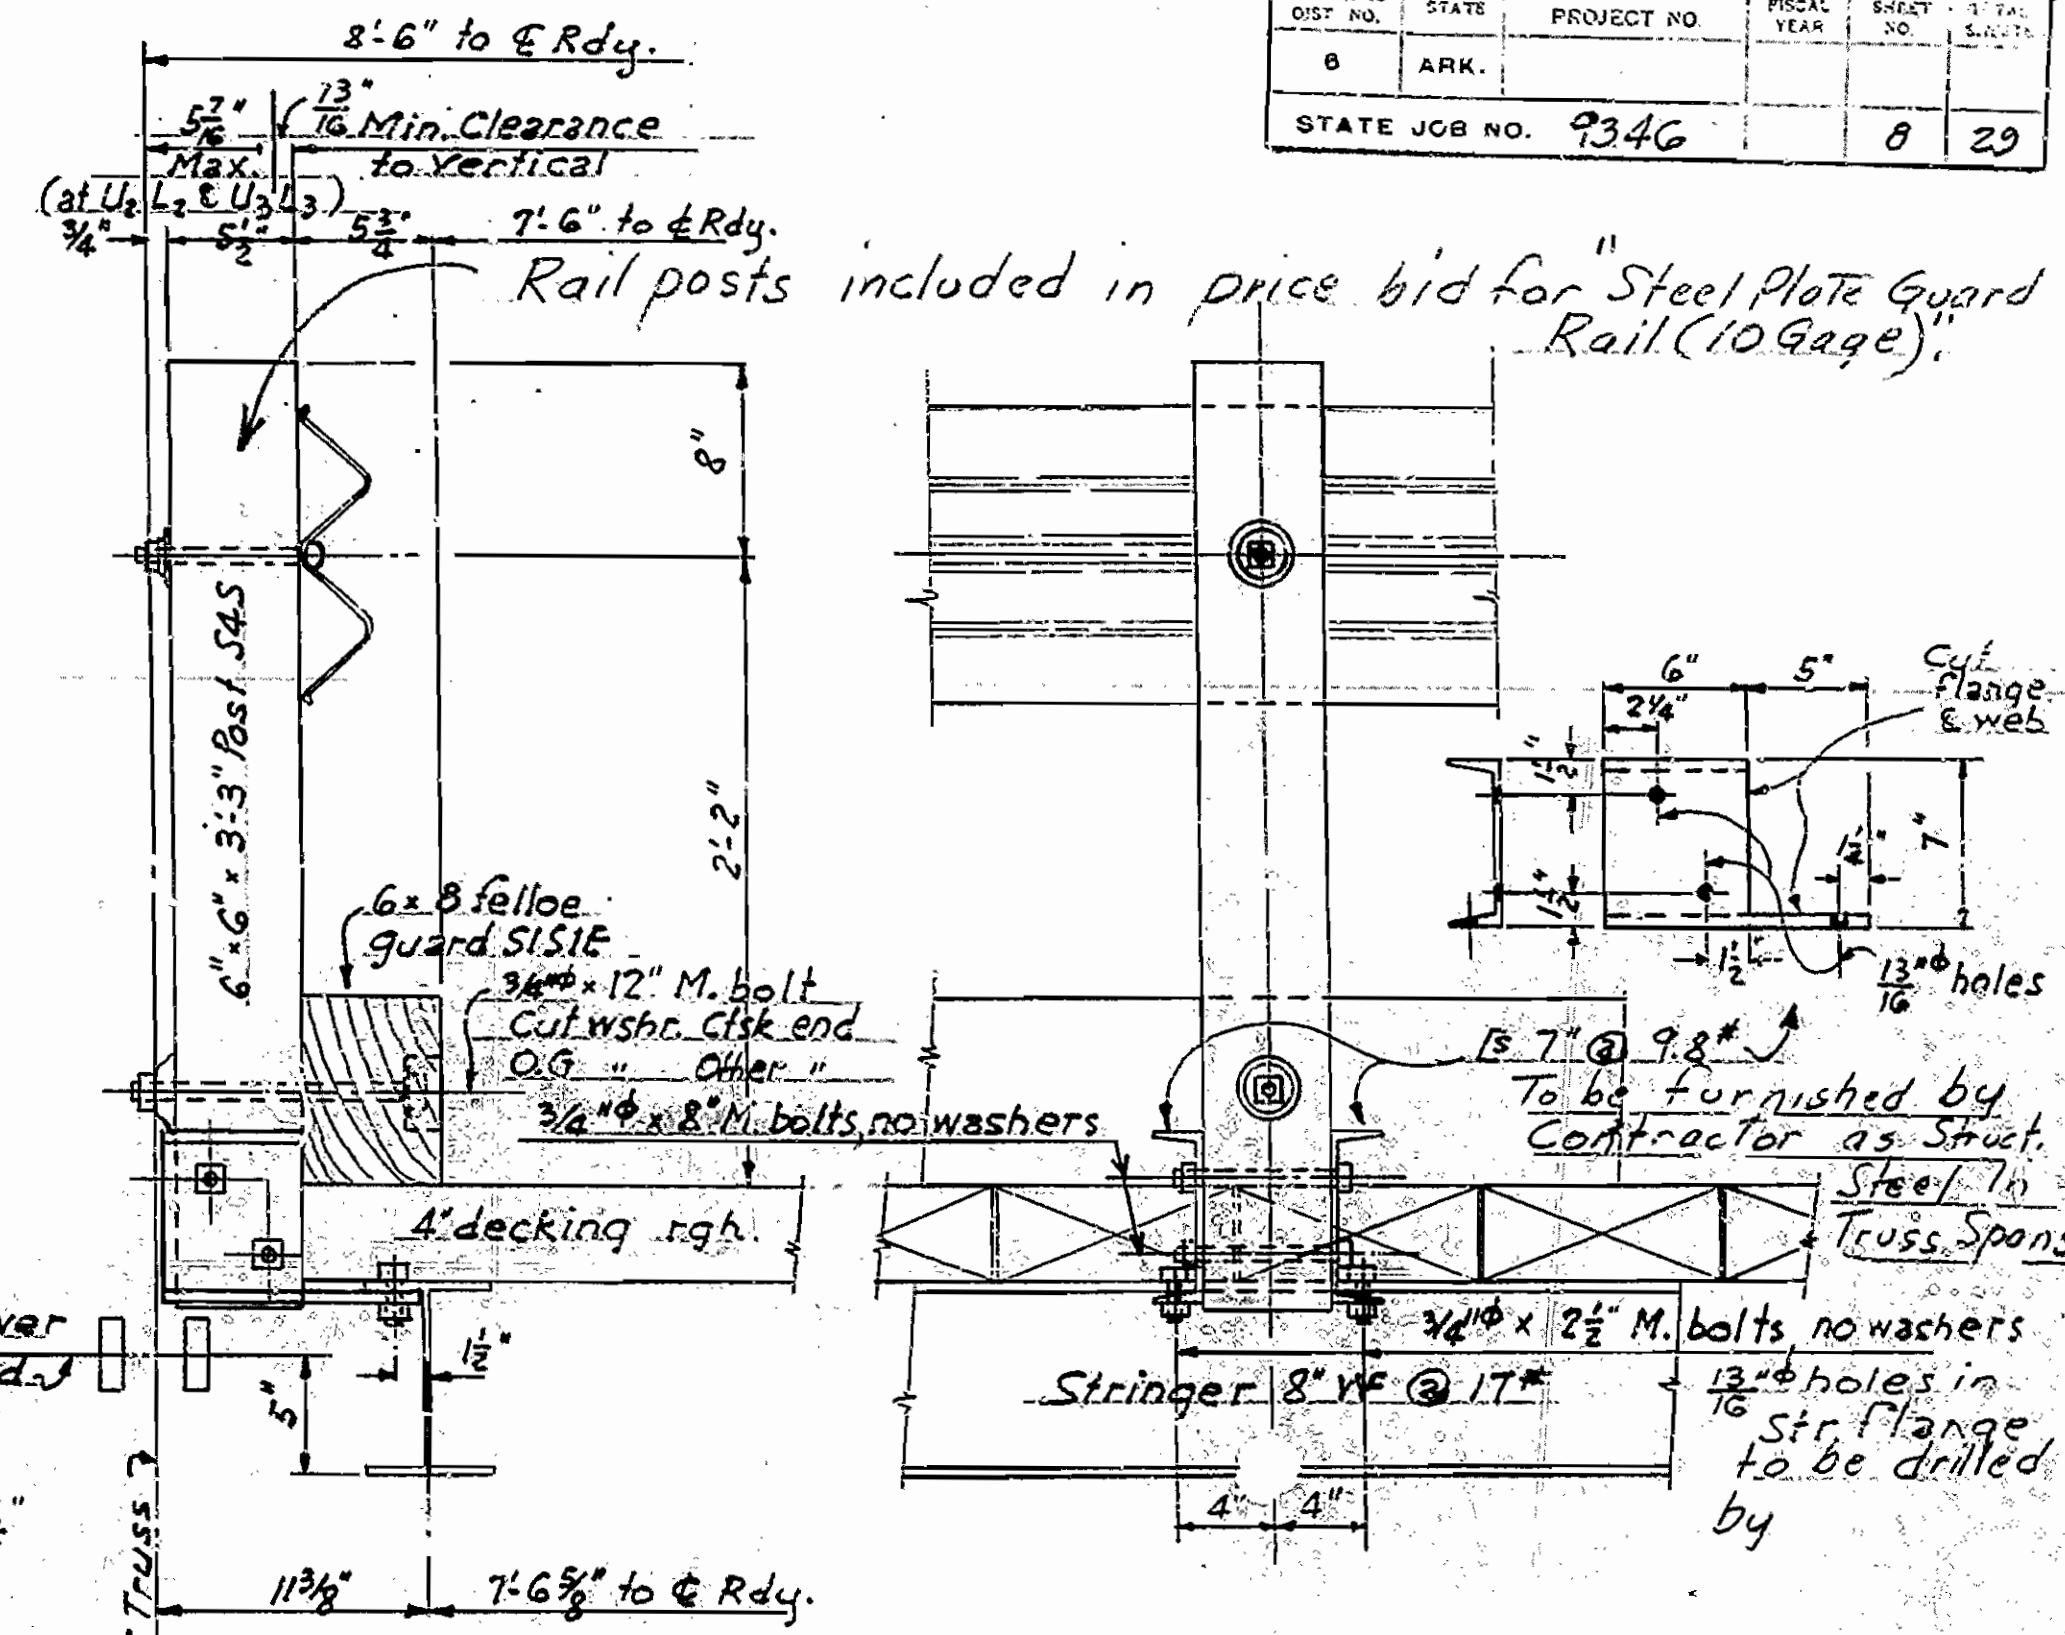 DIST NO. STATE PROJECT NO. FISCAL YEAR SHEET NO. TOTAL SHEETS
6 ARK.
STATE JOB NO. 9346 8 29
8'-6" to ℄ Rdy.
5 7/16" Max.
13/16" Min. Clearance
to vertical
(at U₂ L₂ & U₃ L₃)
3/4" 5 1/2" 5 3/4" 7'-6" to ℄ Rdy.
Rail posts included in price bid for "Steel Plate Guard
Rail (10 Gage)".
8"
2'-2"
6" x 6" x 3'-3" Post S4S
6 x 8 felloe
guard S1S1E
3/4"ϕ x 12" M. bolt
Cut wshr. Ctsk end
O.G " Other "
3/4"ϕ x 8" M. bolts, no washers
4" decking rgh.
1 1/2"
5"
Truss
11 3/8" 7'-6 5/8" to ℄ Rdy.
6" 5"
2 1/4"
Cut
flange
& web
1 1/2"
1 1/2"
1 1/2"
7"
1 1/2"
13/16"ϕ holes
[s 7" @ 9.8#
To be furnished by
Contractor as Struct.
Steel In
Truss Spans
3/4"ϕ x 2 1/2" M. bolts, no washers
Stringer 8" WF @ 17#
13/16"ϕ holes in
Str. flange
to be drilled
by
4" 4"